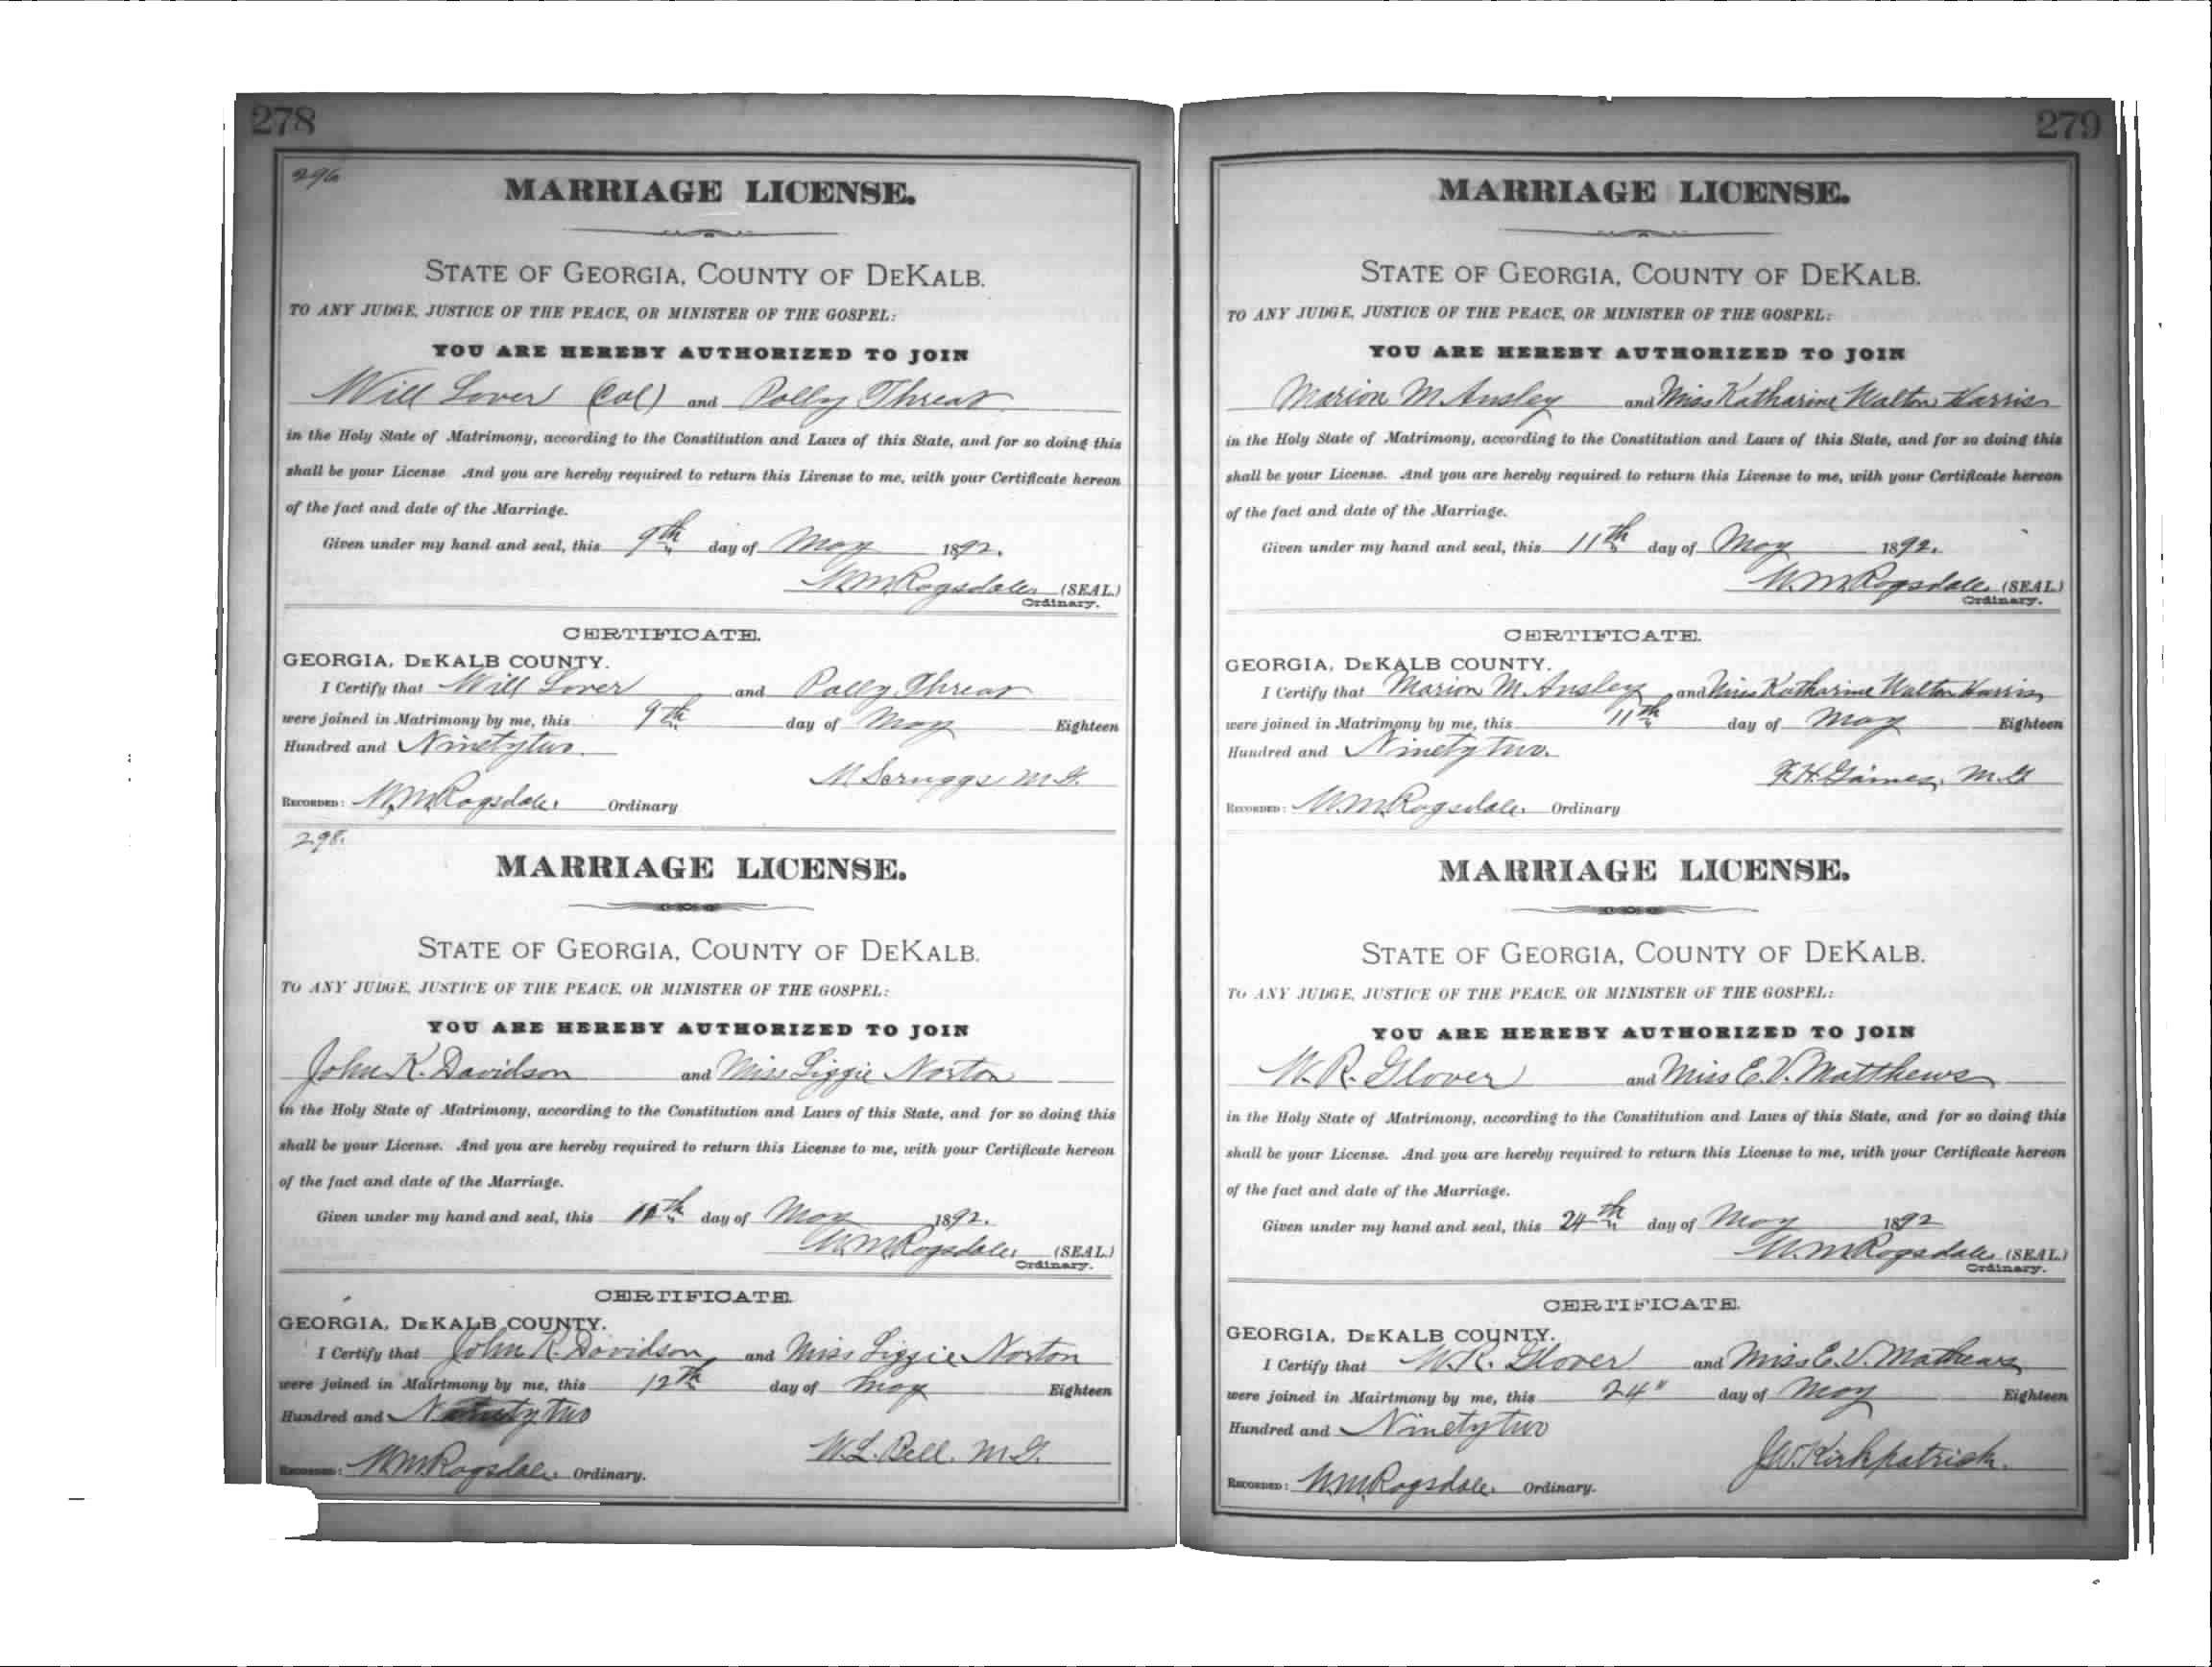 278
296
MARRIAGE LICENSE.
STATE OF GEORGIA, COUNTY OF DEKALB.
TO ANY JUDGE, JUSTICE OF THE PEACE, OR MINISTER OF THE GOSPEL:
YOU ARE HEREBY AUTHORIZED TO JOIN
Will Lover (Col) and Polly Threat
in the Holy State of Matrimony, according to the Constitution and Laws of this State, and for so doing this
shall be your License. And you are hereby required to return this License to me, with your Certificate hereon
of the fact and date of the Marriage.
Given under my hand and seal, this 9th day of May 1892.
W.M. Ragsdale, (SEAL.)
Ordinary.
CERTIFICATE.
GEORGIA, DEKALB COUNTY.
I Certify that Will Lover and Polly Threat
were joined in Matrimony by me, this 9th day of May Eighteen
Hundred and Ninety two.
M Scruggs M.G.
RECORDED: W.M. Ragsdale. Ordinary
298.
MARRIAGE LICENSE.
STATE OF GEORGIA, COUNTY OF DEKALB.
TO ANY JUDGE, JUSTICE OF THE PEACE, OR MINISTER OF THE GOSPEL:
YOU ARE HEREBY AUTHORIZED TO JOIN
John K. Davidson and Miss Lizzie Norton
in the Holy State of Matrimony, according to the Constitution and Laws of this State, and for so doing this
shall be your License. And you are hereby required to return this License to me, with your Certificate hereon
of the fact and date of the Marriage.
Given under my hand and seal, this day of May 1892.
W.M. Ragsdale, (SEAL.)
Ordinary.
CERTIFICATE.
GEORGIA, DEKALB COUNTY.
I Certify that John K. Davidson and Miss Lizzie Norton
were joined in Mairtmony by me, this 12th day of May Eighteen
Hundred and Ninety two
W.L. Bell. M.G.
RECORDED: W.M. Ragsdale. Ordinary.
279
MARRIAGE LICENSE.
STATE OF GEORGIA, COUNTY OF DEKALB.
TO ANY JUDGE, JUSTICE OF THE PEACE, OR MINISTER OF THE GOSPEL:
YOU ARE HEREBY AUTHORIZED TO JOIN
Marion M. Ansley and Miss Katharine Walton Harris
in the Holy State of Matrimony, according to the Constitution and Laws of this State, and for so doing this
shall be your License. And you are hereby required to return this License to me, with your Certificate hereon
of the fact and date of the Marriage.
Given under my hand and seal, this 11th day of May 1892.
W.M. Ragsdale, (SEAL.)
Ordinary.
CERTIFICATE.
GEORGIA, DEKALB COUNTY.
I Certify that Marion M. Ansley and Miss Katharine Walton Harris
were joined in Matrimony by me, this 11th day of May Eighteen
Hundred and Ninety two.
F.H. Gaines, M.G
RECORDED: W.M. Ragsdale. Ordinary
MARRIAGE LICENSE.
STATE OF GEORGIA, COUNTY OF DEKALB.
TO ANY JUDGE, JUSTICE OF THE PEACE, OR MINISTER OF THE GOSPEL:
YOU ARE HEREBY AUTHORIZED TO JOIN
W. R. Glover and Miss E.V. Matthews
in the Holy State of Matrimony, according to the Constitution and Laws of this State, and for so doing this
shall be your License. And you are hereby required to return this License to me, with your Certificate hereon
of the fact and date of the Marriage.
Given under my hand and seal, this 24th day of May 1892
W.M. Ragsdale, (SEAL.)
Ordinary.
CERTIFICATE.
GEORGIA, DEKALB COUNTY.
I Certify that W.R. Glover and Miss E.V. Mathews
were joined in Mairtmony by me, this 24" day of May Eighteen
Hundred and Ninety two
J.W. Kirkpatrick.
RECORDED: W.M. Ragsdale. Ordinary.